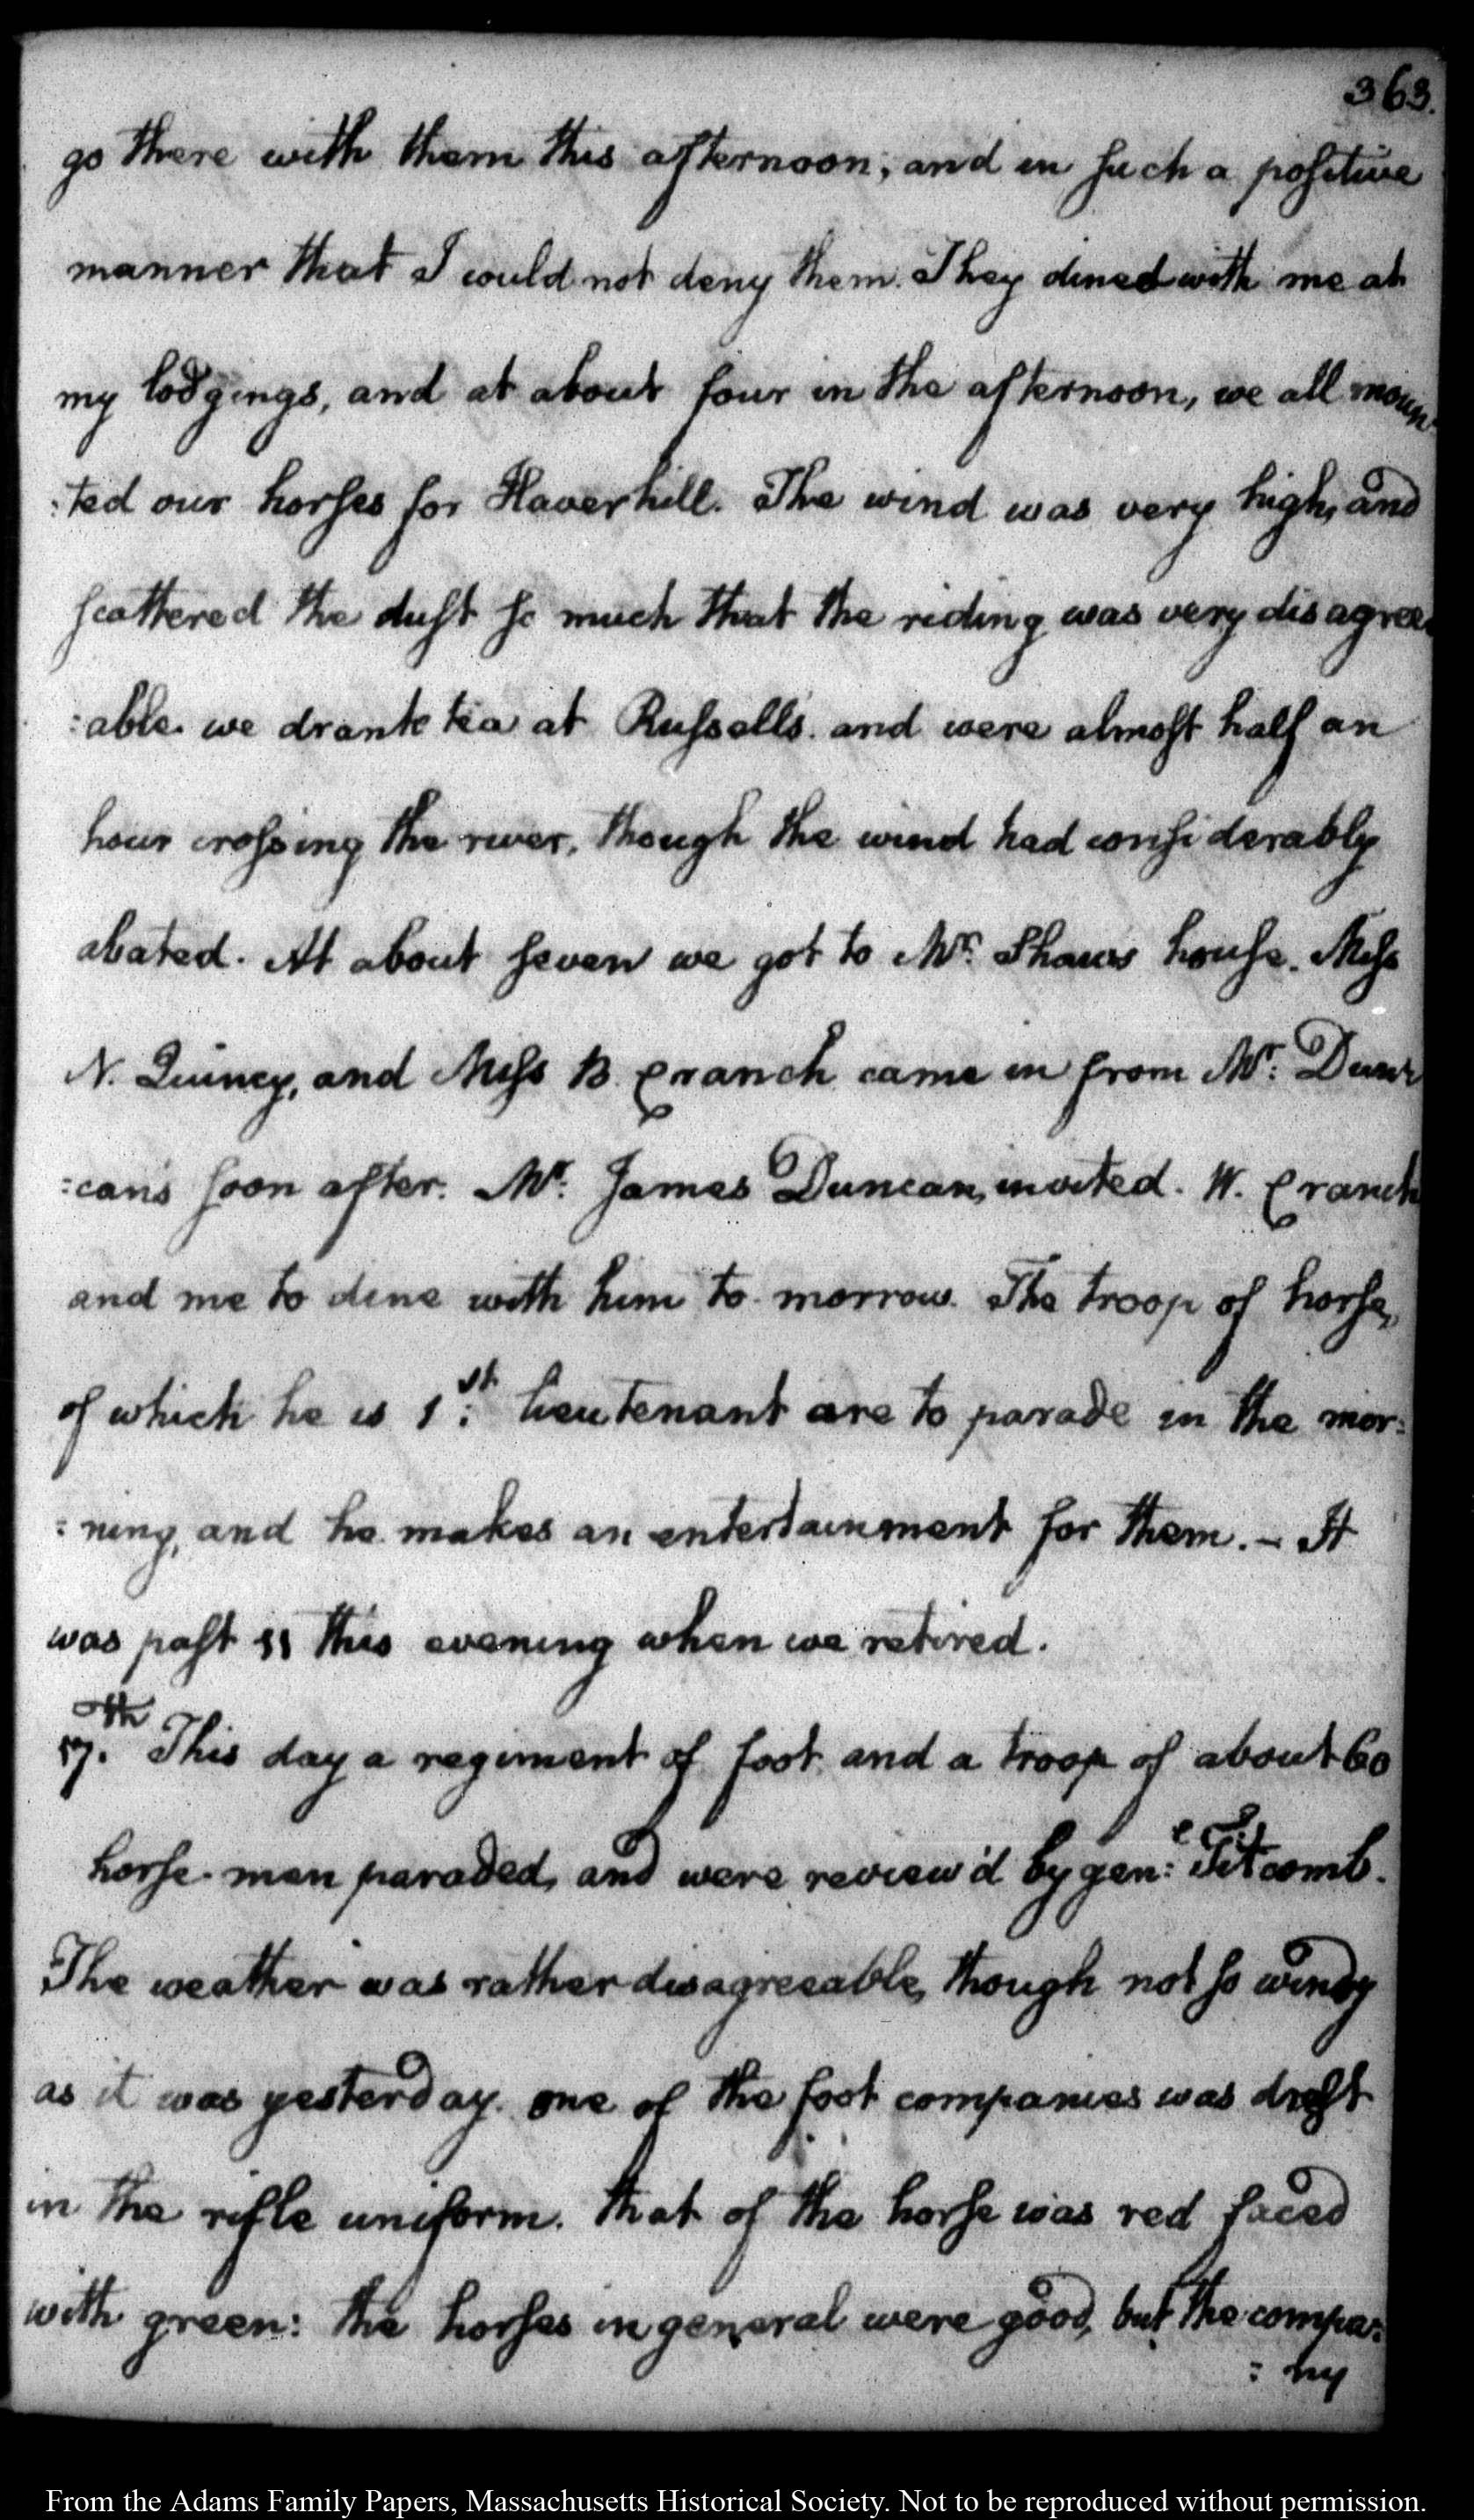 363.
go there with them this afternoon; and in such a positive
manner that I could not deny them. They dined with me at
my lodgings, and at about four in the afternoon, we all moun-
:ted our horses for Haverhill. The wind was very high, and
scattered the dust so much that the riding was very disagree-
:able. we drank tea at Russell's. and were almost half an
hour crossing the river, though the wind had considerably
abated. At about seven we got to Mr. Shaws house. Miss
N. Quincy, and Miss B. Cranch came in from Mr: Dun-
:can's soon after. Mr: James Duncan, invited. W. Cranch
and me to dine with him to-morrow. The troop of horse,
of which he is 1:st lieutenant are to parade in the mor:
:ning, and he makes an entertainment for them. — It
was past 11 this evening when we retired.
17.th This day a regiment of foot and a troop of about 60
horse-men paraded, and were review'd by gen:l Titcomb.
The weather was rather disagreeable, though not so windy
as it was yesterday. one of the foot companies was drest
in the rifle uniform. that of the horse was red faced
with green: the horses in general were good, but the compa:
:ny
From the Adams Family Papers, Massachusetts Historical Society. Not to be reproduced without permission.